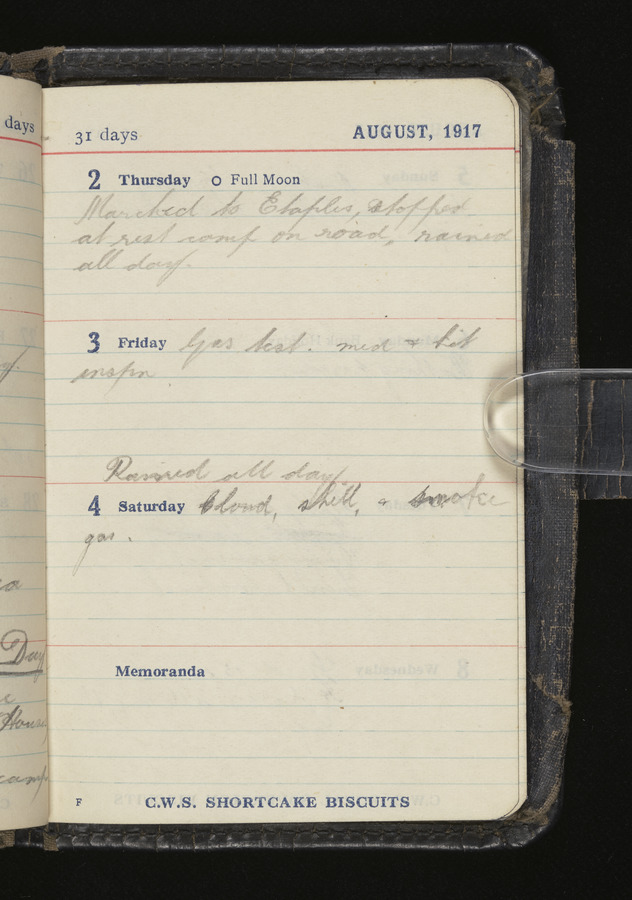 days
31 days AUGUST, 1917
2 Thursday O Full Moon
Marched to Etaples, stopped
at rest camp on road, rained
all day.
3 Friday Gas test. med & kit
inspn.
Rained all day.
4 Saturday Cloud, shell, & smoke
gas.
Day
House
camp
Memoranda
F C.W.S. SHORTCAKE BISCUITS